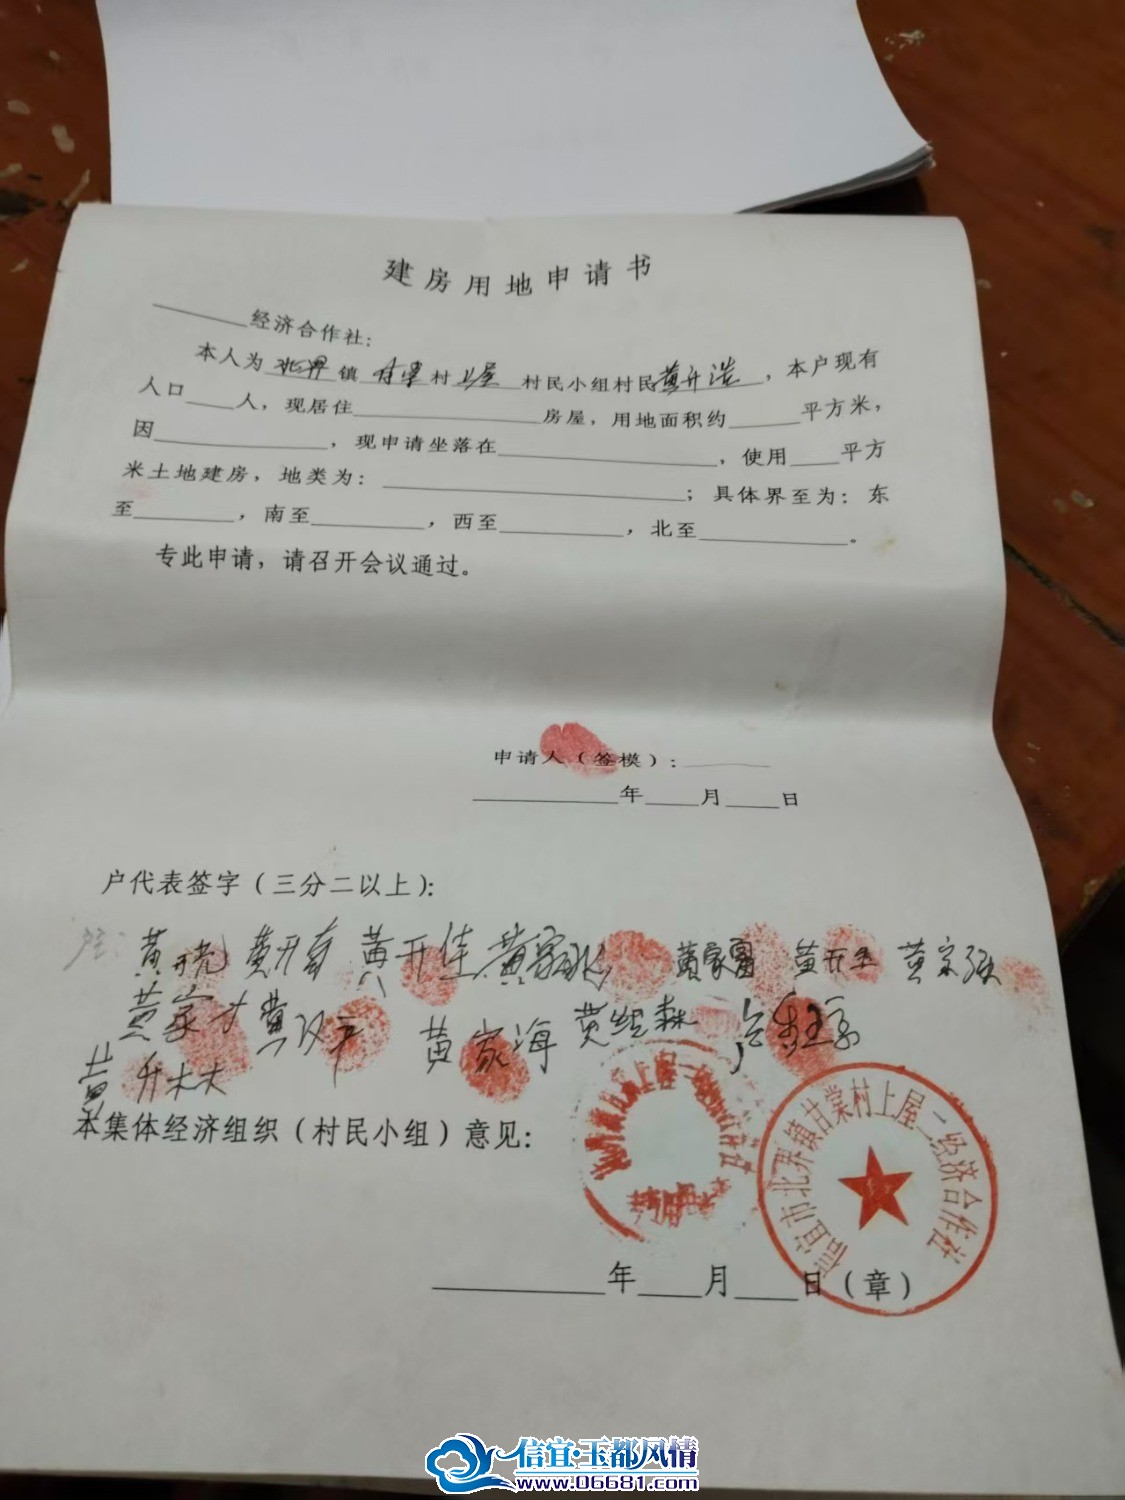 建房用地申请书
______经济合作社:
本人为北界镇甘棠村上屋村民小组村民黄开浩，本户现有
人口____人，现居住________________房屋，用地面积约______平方米，
因______________，现申请坐落在__________________，使用____平方
米土地建房，地类为：________________________；具体界至为：东
至________，南至________，西至__________，北至____________。
专此申请，请召开会议通过。
申请人（签模）：______
____________年____月____日
户代表签字（三分二以上）:
黄开亮 黄开有 黄开佳 黄家 黄家富 黄开 黄家强
黄家才 黄汉平 黄家海 黄 森
黄升
本集体经济组织（村民小组）意见：
信宜市北界镇甘棠村上屋二经济合作社
____________年____月____日（章）
信宜·玉都风情
www.06681.com